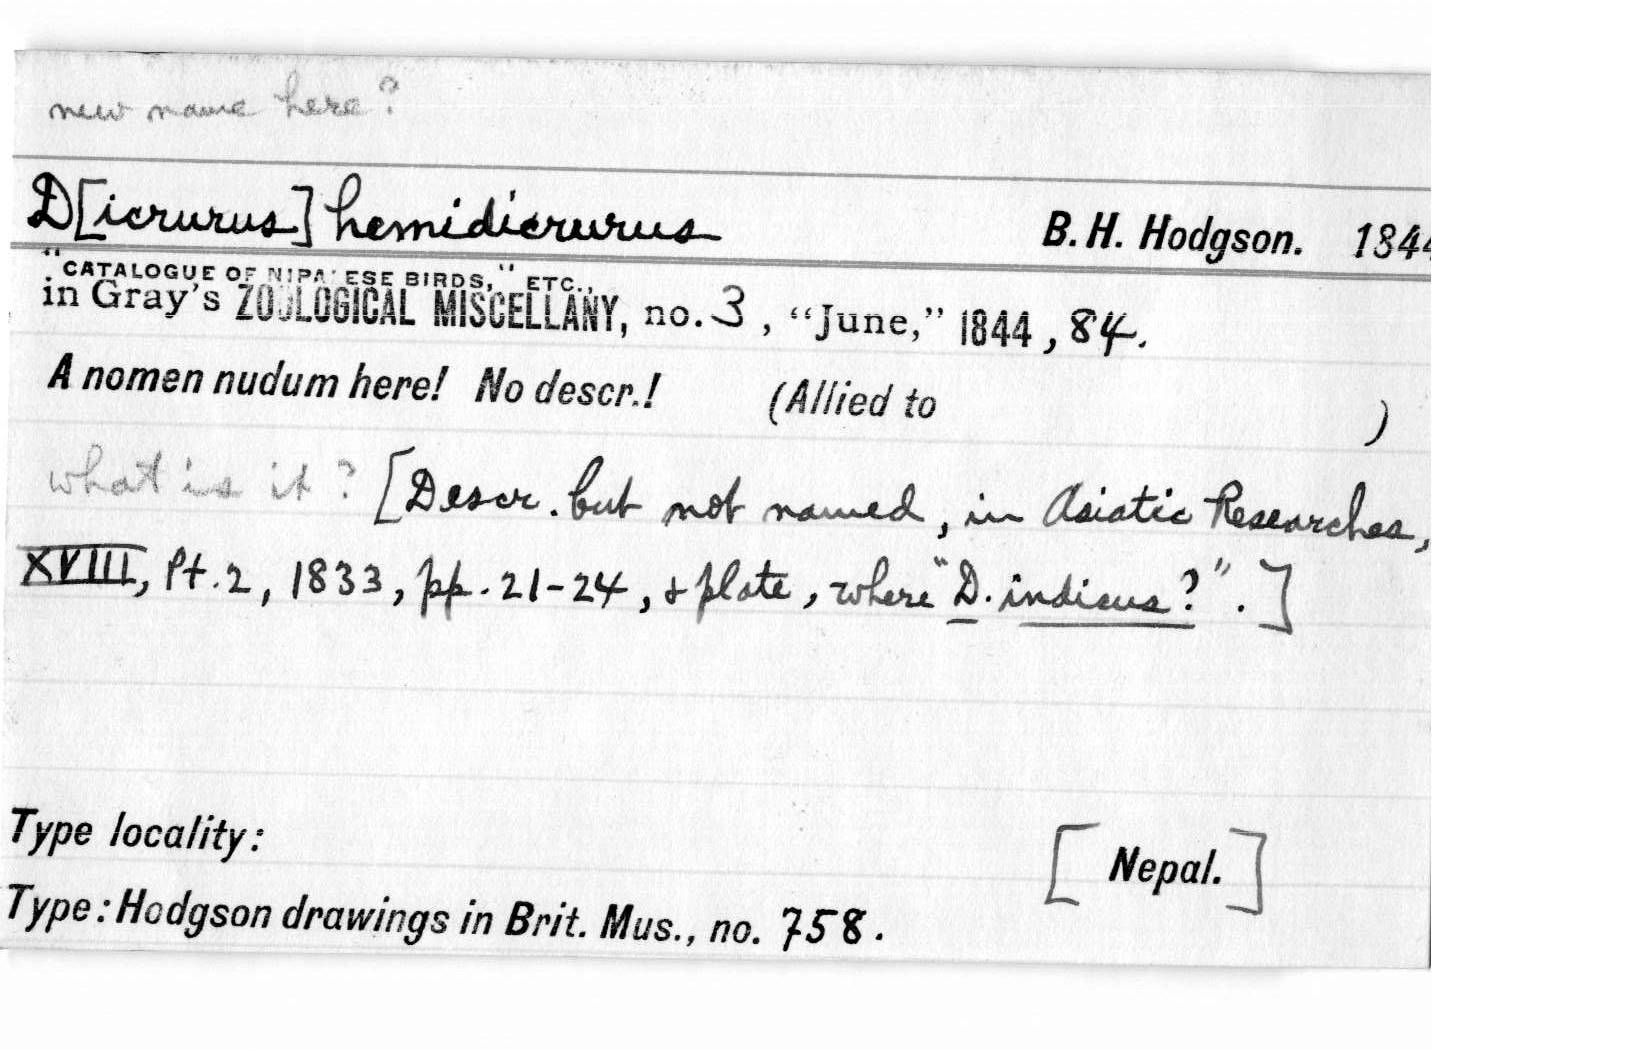 new name here?
D[icrurus] hemidicrurus B. H. Hodgson. 1844
"CATALOGUE OF NIPALESE BIRDS," ETC.,
in Gray's ZOOLOGICAL MISCELLANY, no. 3, "June," 1844, 84.
A nomen nudum here! No descr.! (Allied to )
what is it? [Descr. but not named, in Asiatic Researches,
XVIII, Pt. 2, 1833, pp. 21-24, & plate, where "D. indicus?".]
Type locality: [Nepal.]
Type: Hodgson drawings in Brit. Mus., no. 758.